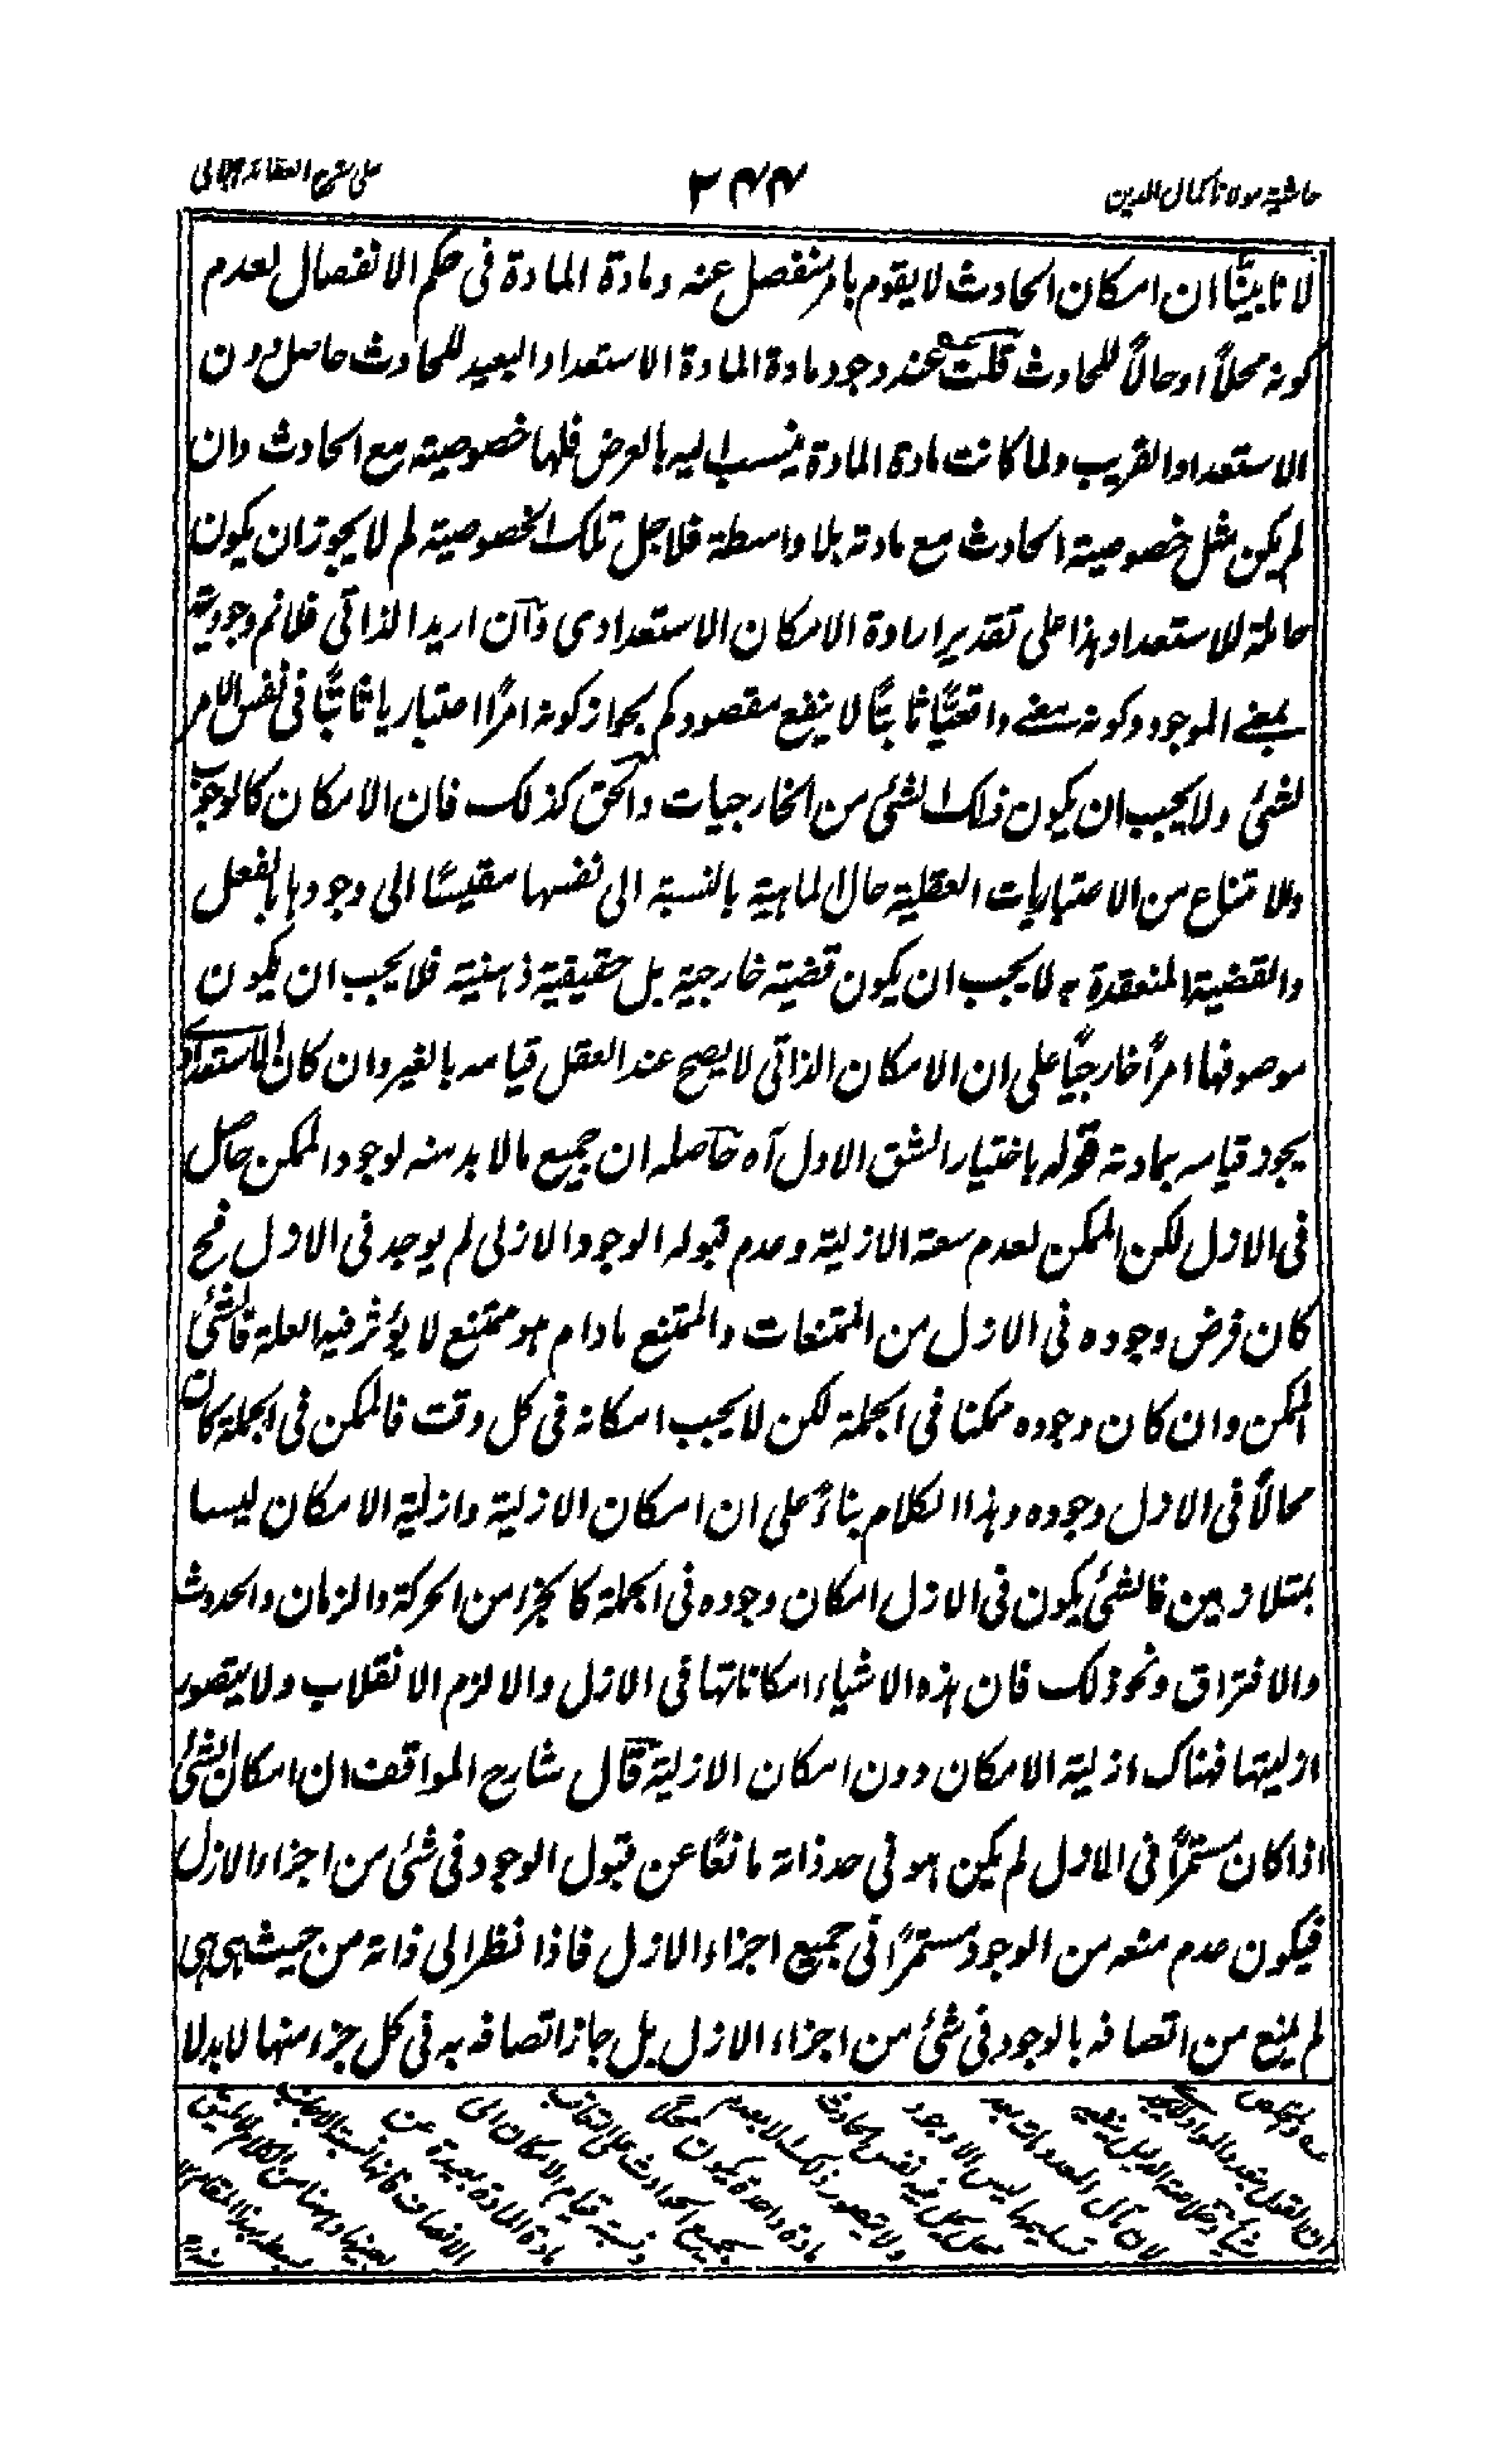 حاشية مولانا كمال الدين
٢٤٤
على شرح العقائد الجلالى
لانا بينّا ان امكان الحادث لا يقوم بامر منفصل عنه ومادة المادة فى حكم الانفصال لعدم
كونه محلاً او حالاً للحادث قلت عند وجود مادة المادة الاستعداد البعيد للحادث حاصل دون
الاستعداد القريب ولما كانت مادة المادة ينسب اليه بالعرض فلها خصوصية مع الحادث وان
لم يكن مثل خصوصية الحادث مع مادته بلا واسطة فلاجل تلك الخصوصية لم لا يجوز ان يكون
حاملة للاستعداد وهذا على تقدير ارادة الامكان الاستعدادى وان اريد الذاتى فلانم وجوديته
بمعنے الموجود وكونه بمعنے واقعيًّا ثابتًا لا ينفع مقصودكم بجواز كونه امرًا اعتباريا ثابتًا فى نفس الامر
لشئ ولا يجب ان يكون ذلك الشئ من الخارجيات والحق كذلك فان الامكان كالوجوب
والامتناع من الاعتباريات العقلية حال الماهية بالنسبة الى نفسها مقيسًا الى وجودها بالفعل
والقضية المنعقدة به لا يجب ان يكون قضية خارجية بل حقيقية ذهنية فلا يجب ان يكون
موصوفها امراً خارجيًا على ان الامكان الذاتى لا يصح عند العقل قيامه بالغير وان كان الاستعدادى
يجوز قيامه بمادته قوله باختيار الشق الاول آه حاصله ان جميع مالا بد منه لوجود الممكن حاصل
فى الازل لكن الممكن لعدم سعة الازلية وعدم قبوله الوجود الازلى لم يوجد فى الازل فح
كان فرض وجوده فى الازل من الممتنعات والممتنع مادام هو ممتنع لا يؤثر فيه العلة فالشئ
الممكن وان كان وجوده ممكنا فى الجملة لكن لا يجب امكانه فى كل وقت فالممكن فى الجملة كان
محالاً فى الازل وجوده وهذا الكلام بناءً على ان امكان الازلية وازلية الامكان ليسا
بمتلازمين فالشئ يكون فى الازل امكان وجوده فى الجملة كالجزء من الحركة والزمان والحدوث
والافتراق ونحو ذلك فان هذه الاشياء امكاناتها فى الازل والا لزم الانقلاب ولا يتصور
ازليتها فهناك ازلية الامكان دون امكان الازلية قال شارح المواقف ان امكان الشئ
اذا كان مستمرًا فى الازل لم يكن هو فى حد ذاته مانعًا عن قبول الوجود فى شئ من اجزاء الازل
فيكون عدم منعه من الوجود مستمرًا فى جميع اجزاء الازل فاذا نظر الى ذاته من حيث هى هى
لم يمنع من اتصافه بالوجود فى شئ من اجزاء الازل بل جاز اتصافه به فى كل جزء منها لا بدلا